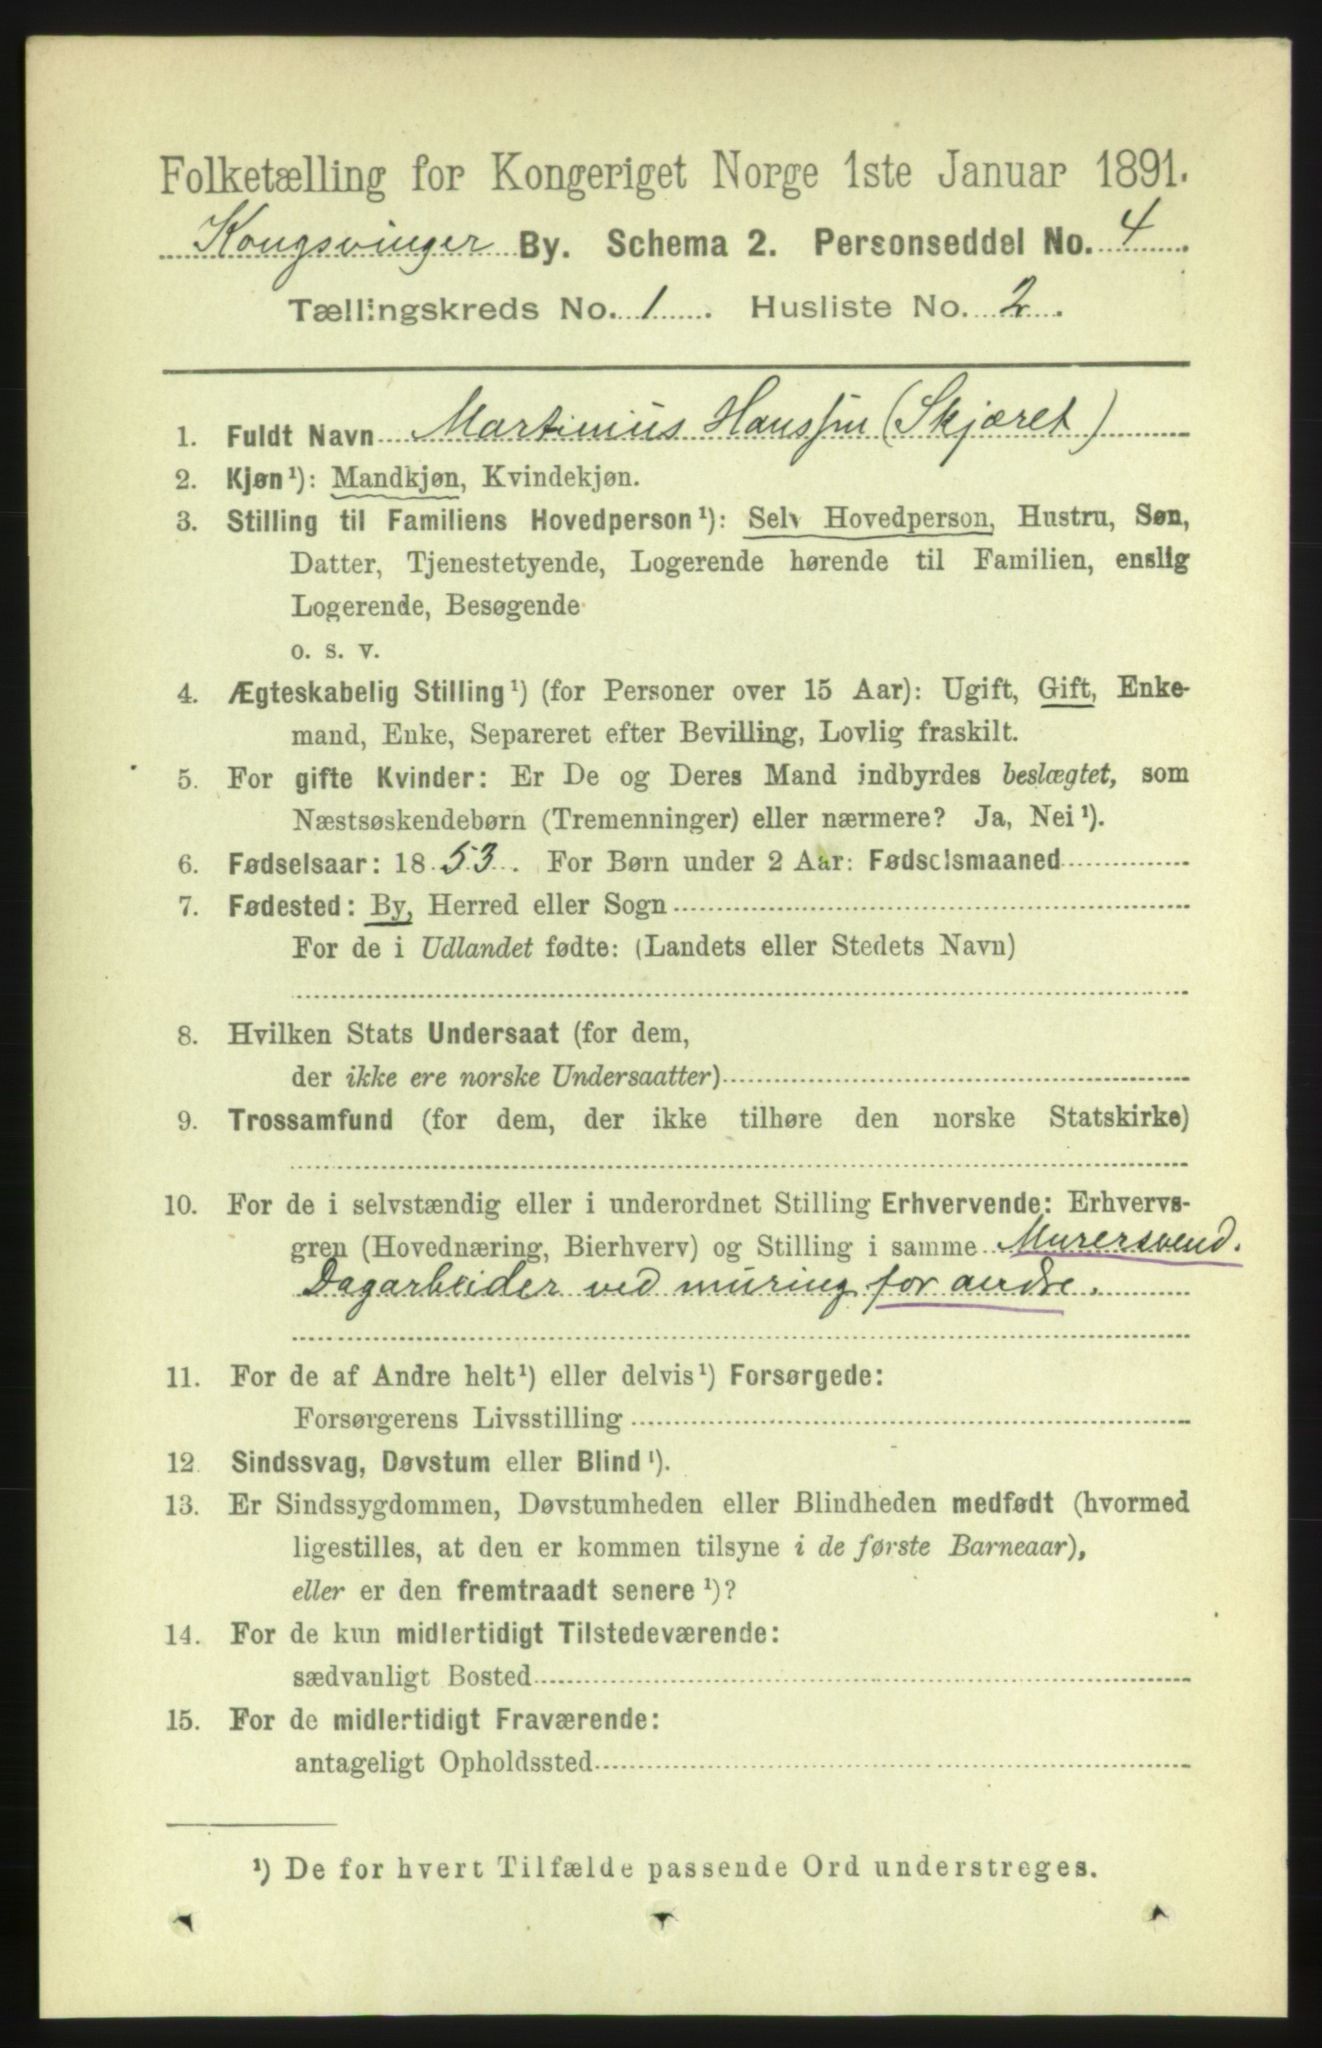 Folketælling for Kongeriget Norge 1ste Januar 1891.
Kongsvinger By. Schema 2. Personseddel No. 4.
Tællingskreds No. 1. Husliste No. 2.
1. Fuldt Navn Martinius Hanssen (Skjæret)
2. Kjøn¹): Mandkjøn, Kvindekjøn.
3. Stilling til Familiens Hovedperson¹): Selv Hovedperson, Hustru, Søn,
Datter, Tjenestetyende, Logerende hørende til Familien, enslig
Logerende, Besøgende
o. s. v.
4. Ægteskabelig Stilling¹) (for Personer over 15 Aar): Ugift, Gift, Enke-
mand, Enke, Separeret efter Bevilling, Lovlig fraskilt.
5. For gifte Kvinder: Er De og Deres Mand indbyrdes beslægtet, som
Næstsøskendebørn (Tremenninger) eller nærmere? Ja, Nei¹).
6. Fødselsaar: 1853. For Børn under 2 Aar: Fødselsmaaned
7. Fødested: By, Herred eller Sogn
For de i Udlandet fødte: (Landets eller Stedets Navn)
8. Hvilken Stats Undersaat (for dem,
der ikke ere norske Undersaatter)
9. Trossamfund (for dem, der ikke tilhøre den norske Statskirke)
10. For de i selvstændig eller i underordnet Stilling Erhvervende: Erhvervs-
gren (Hovednæring, Bierhverv) og Stilling i samme Murersvend.
Dagarbeider ved muring for andre.
11. For de af Andre helt¹) eller delvis¹) Forsørgede:
Forsørgerens Livsstilling
12. Sindssvag, Døvstum eller Blind¹).
13. Er Sindssygdommen, Døvstumheden eller Blindheden medfødt (hvormed
ligestilles, at den er kommen tilsyne i de første Barneaar),
eller er den fremtraadt senere¹)?
14. For de kun midlertidigt Tilstedeværende:
sædvanligt Bosted
15. For de midlertidigt Fraværende:
antageligt Opholdssted
¹) De for hvert Tilfælde passende Ord understreges.